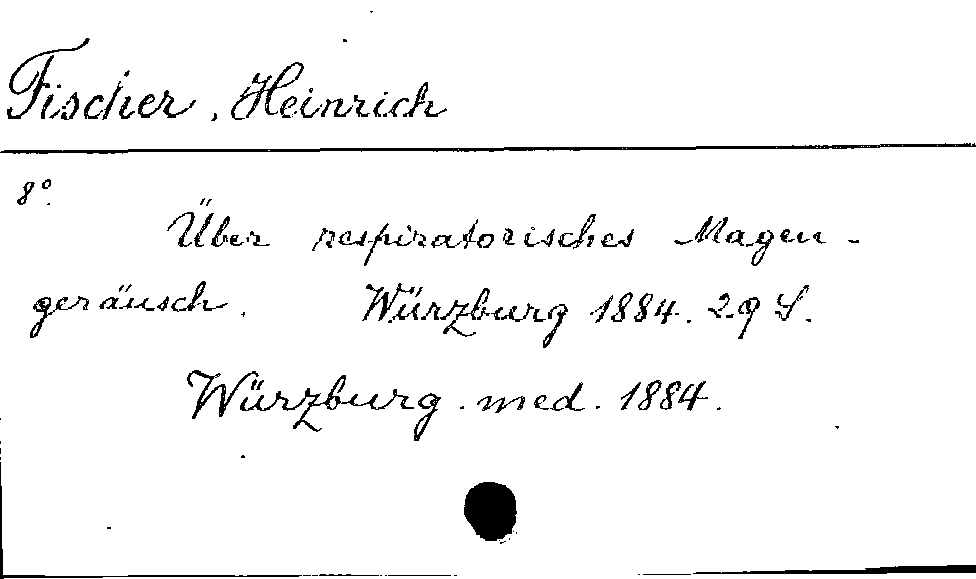 Fischer, Heinrich
8°.
Über respiratorisches Magen-
geräusch. Würzburg 1884. 29 S.
Würzburg. med. 1884.